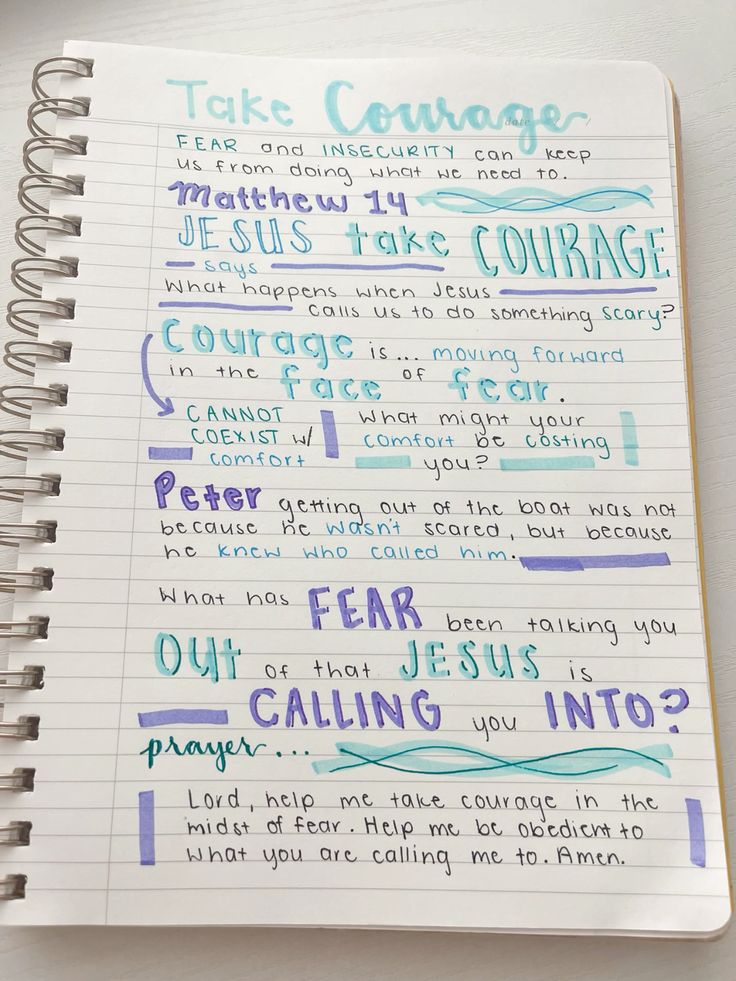 Take Courage
date /
FEAR and INSECURITY can keep
us from doing what we need to.
Matthew 14
JESUS take COURAGE
says
What happens when Jesus
calls us to do something scary?
courage is... moving forward
in the face of fear.
CANNOT
COEXIST w/
comfort
What might your
comfort be costing
you?
Peter getting out of the boat was not
because he wasn't scared, but because
he knew who called him.
What has FEAR been talking you
OUT of that JESUS is
CALLING you INTO?
prayer...
Lord, help me take courage in the
midst of fear. Help me be obedient to
what you are calling me to. Amen.